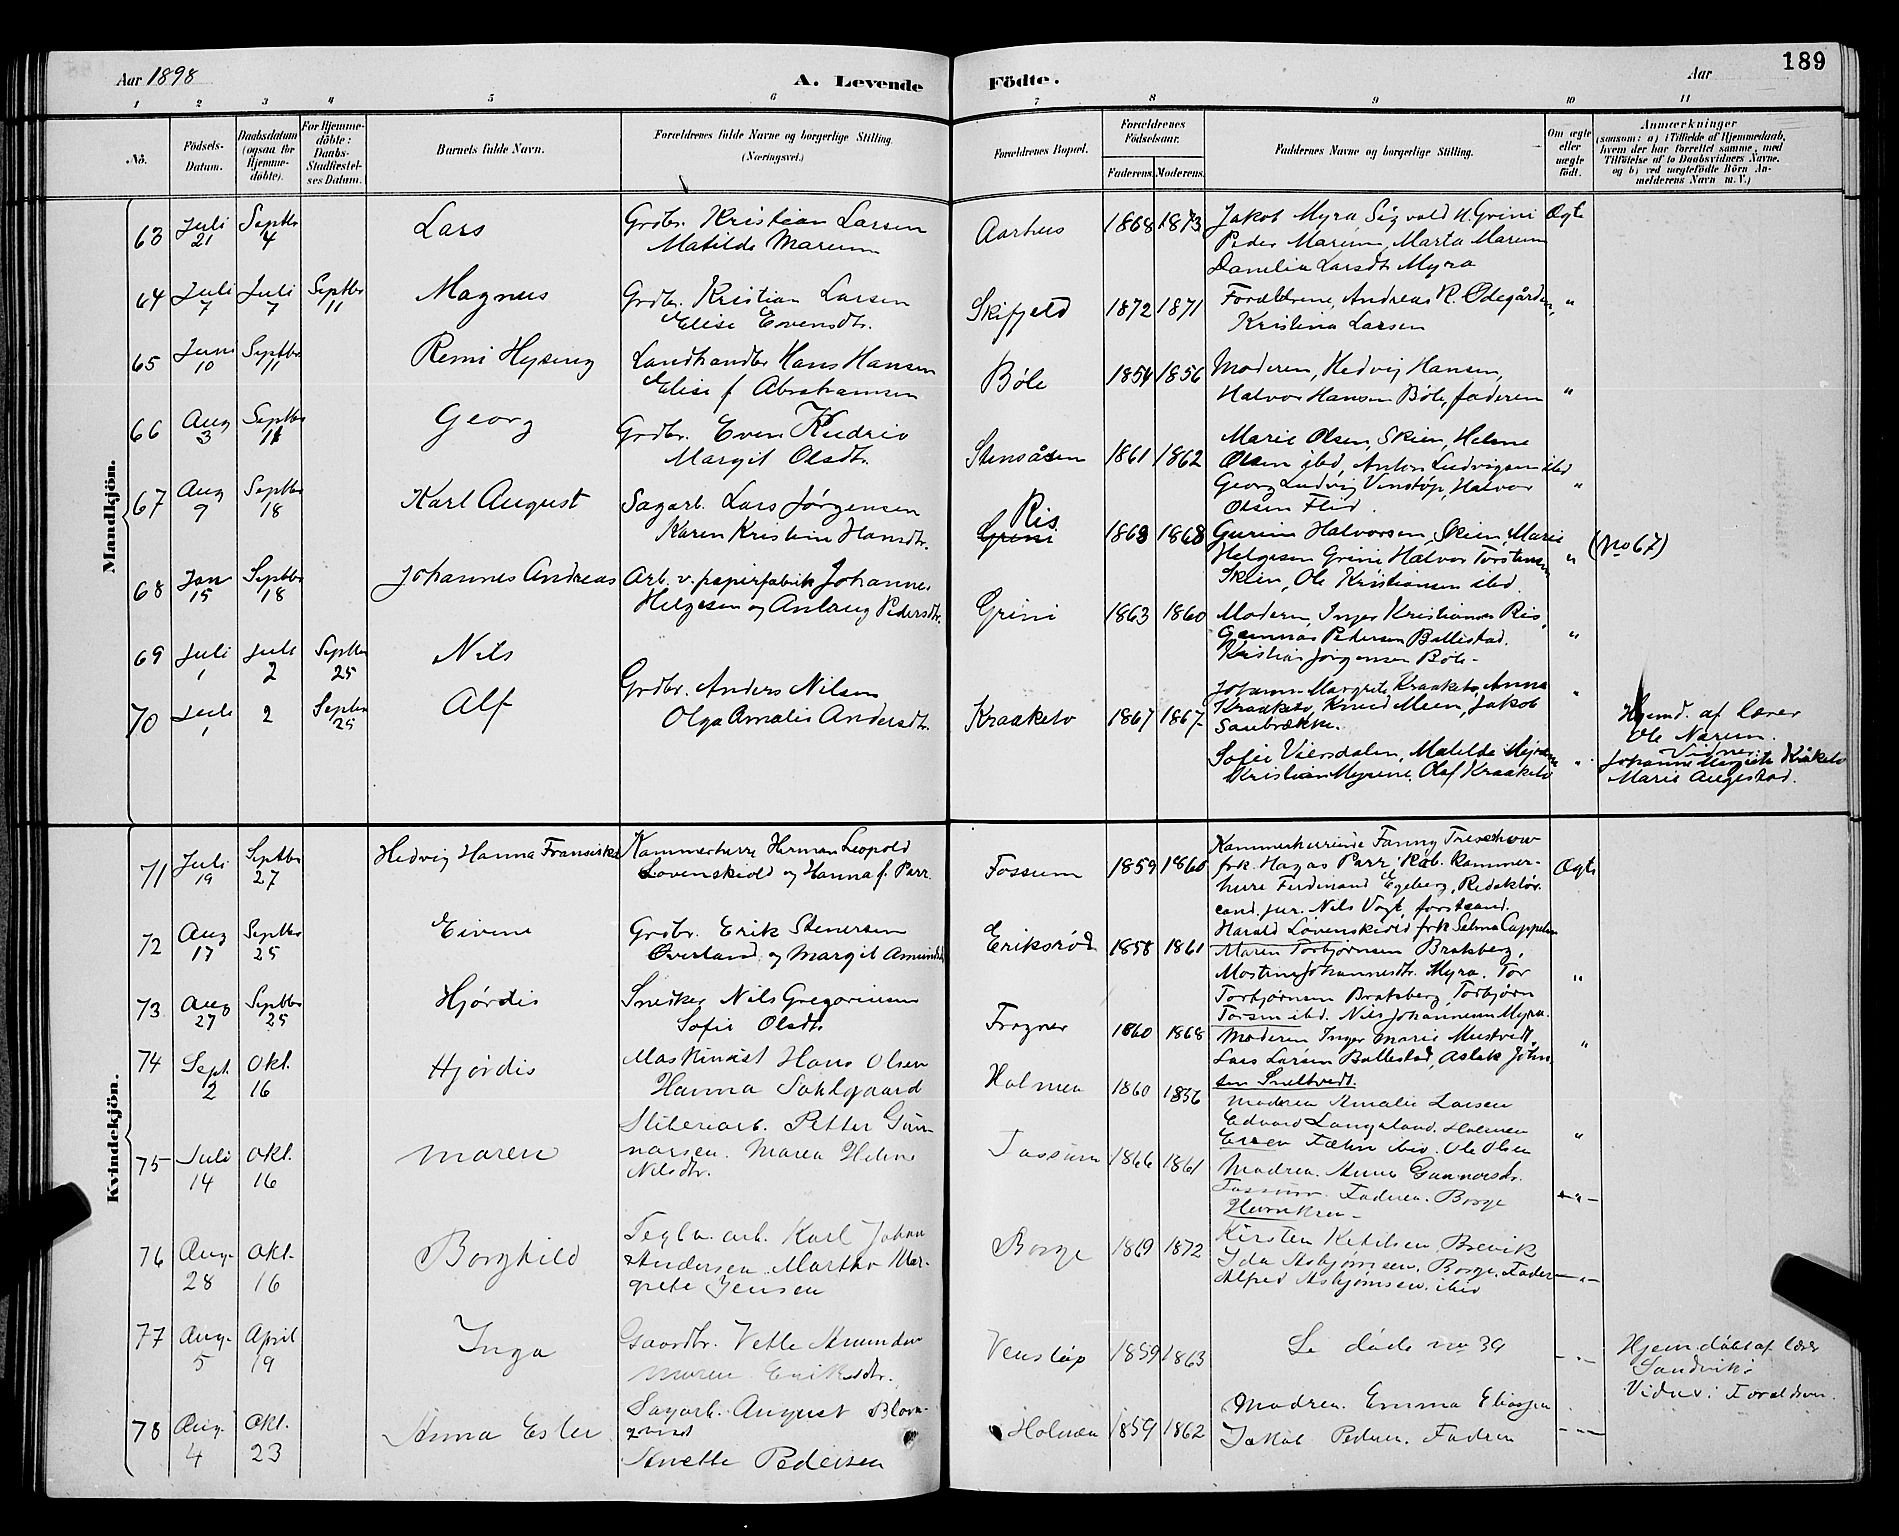 Aar 1898
A. Levende
Födte.
Aar
189
1 2 3 4 5 6 7 8 9 10 11
No.
Födsels-Datum.
Daabsdatum (ogsaa for Hjemme-döbte).
For Hjemme-döbte: Daabs-Stadfæstel-ses Datum.
Barnets fulde Navn.
Forældrenes fulde Navne og borgerlige Stilling. (Næringsvei.)
Forældrenes Bopæl.
Forældrenes Födselsaar.
Faderens. Moderens.
Faddernes Navne og borgerlige Stilling.
Om ægte eller uægte födt.
Anmærkninger
(saasom: a) i Tilfælde af Hjemmedaab,
hvem der har forrettet samme, med
Tilföielse af to Daabsvidners Navne.
og b) ved uægtefödte Börn An-
melderens Navn m. V.)
Mandkjön.
63 Juli 21 Septbr 4 Lars
Grdbr. Kristian Larsen
Matilde Marum
Aarhus 1868 1873
Jakob Myra, Sigvald H. Grini
Peder Marum, Marta Marum
Danelia Larsdt. Myra
Ægte
64 Juli 7 Juli 7 Septbr 11 Magnus
Grdbr. Kristian Larsen
Elise Evensdtr.
Skifjeld 1872 1871
Forældrene, Andreas R. Ødegården,
Kristina Larsen
"
65 Juni 10 Septbr 11 Remi Hysing
Landhandler Hans Hansen
Elise f. Abrahamsen
Bøle 1854 1856
Moderen, Hedvig Hansen,
Halvor Hansen Bøle, faderen
"
66 Aug 3 Septbr 11 Georg
Grdbr. Even
Margit Olsdtr.
Stensåsen 1861 1862
Marie Olsen, Skien, Helene
Olsen ibd, Anton Ludvigsen ibd
Georg Ludvig Venstøp, Halvor
Olsen
"
67 Aug 9 Septbr 18 Karl August
Sagarb. Lars Jørgensen
Karen Kristine Hansdtr.
Ris
Grini 1868 1868
Gurine Halvorsen, Skien, Marie
Helgesen Grini Halvor Torstensen
Skien, Ole Kristiansen ibd.
"
(No 67)
68 Jan 15 Septbr 18 Johannes Andreas
Arb. v. papirfabrik Johannes
Helgesen og Anlaug Pedersdtr.
Grini 1863 1860
Moderen, Inger Kristiansen Ris,
Gunnar Pedersen Ballestad.
Kristian Jørgensen Bøle-
"
69 Juli 1 Juli 2 Septbr 25 Nils
Grdbr. Anders Nilsen
Olga Amalie Andersdtr.
70 Juli 1 2 Septbr 25 Alf
Kraaketo 1867 1867
Johanne Margrete Kraaketo, Anna
Kraaketo, Knud Meen, Jakob
Saubrække.
"
Sofie Viersdalen, Matilde Myrene
Kristian Myrene, Olaf Kraaketo
"
Hjemd. af lærer
Ole Narum.
Vidner
Johanne Margrete Kråketo
Marie Augestad.
Kvindekjön.
71 Juli 19 Septbr 27 Hedvig Hanna Fransiska
Kammerherre Herman Leopold
Løvenskiold og Hanna f. Parr.
Fossum 1859 1860
Kammerherreinde Fanny Treschow
frk. Hagas Parr Kab. Kammer-
herre Ferdinand Egeberg, Redaktør
cand. jur. Nils Vogt, forstcand.
Harald Løvenskiold frk Selma Cappelen
Ægte
72 Aug 17 Septbr 25 Eivine
Grdbr. Erik Stenersen
Øverland og Margit Amundsdtr
Eriksrød 1858 1861
Maren Torbjørnsen Bratsberg,
Mostine Johannesdtr. Myra. Tor
Torbjørnsen Bratsberg, Torbjørn
Torsen ibd. Nils Johannesen Myra.
"
73 Aug 27 Septbr 25 Hjørdis
Snedker Nils Gregoriusen
Sofie Olsdtr
Frogner 1860 1868
Moderen Inger Marie Mustvedt,
Lars Larsen Ballestad, Aslak John-
sen Sneltvedt.
"
74 Sept. 2 Okt. 16 Hjørdis
Maskinist Hans Olsen
Hanna Sahlgaard
Holmen 1860 1856
Moderen Amalie Larsen
Edvard Langeland. Holmen
Fæhn ibid. Ole Olsen
"
75 Juli 14 Okt. 16 Maren
Sliberiarb. Petter Gun-
narsen. Maren Helene
Nilsdtr.
Fossum 1866 1861
Modren. Anne Gunnarsdr.
Fossum. Faderen. Borge
Henriksen-
-"-
76 Aug. 28 Okt. 16 Borghild
Teglv. arb. Karl Johan
Andersen. Martha Mar-
grete Jensen
Borge 1869 1872
Kirsten Ketilsen, Brevik
Ida Asbjørnsen. Borge. Fader
Alfred Asbjørnsen. ibid
-"-
77 Aug. 5 April 19 Inga
Gaardbr. Vetle Amundsen
Maren Eriksdtr.
Venstøp 1859 1863
Se døde no 39
-"-
Hjemdøbt af lærer
Sandvik:
Vidner: Forældrene.
78 Aug. 4 Okt. 23 Anna Ester
Sagarb. August Blom-
qvist
Anette Pedersen
Holmen 1859 1862
Modren. Emma Eliassen
Jakob Pedersen. Fadren
-"-